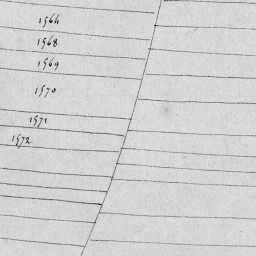 1564
1568
1569
1570
1571
1572